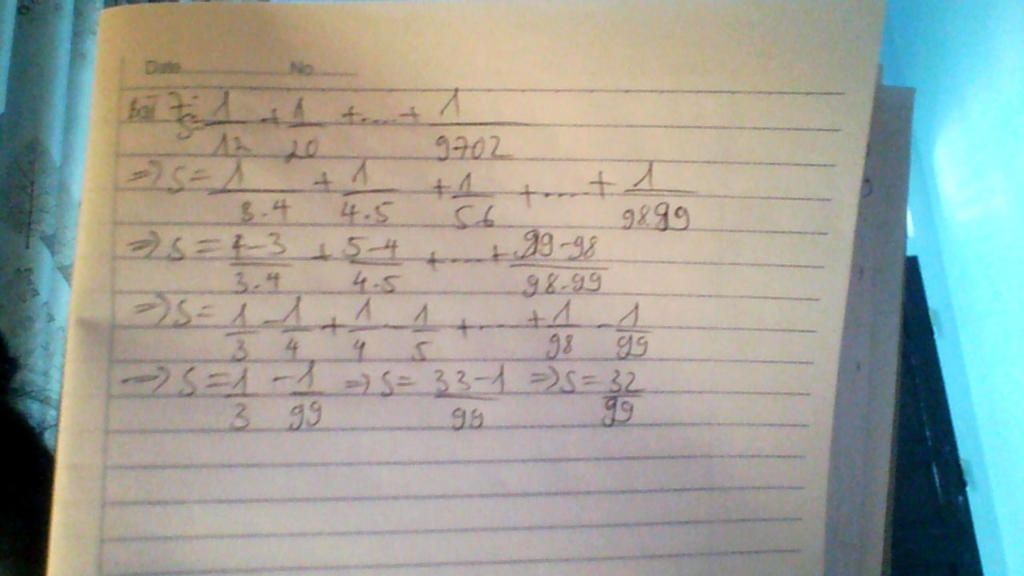 Date No
Bài 7: S= 1/12 + 1/20 +....+ 1/9702
=> S= 1/3.4 + 1/4.5 + 1/5.6 +.....+ 1/98.99
=> S = 4-3/3.4 + 5-4/4.5 +.....+ 99-98/98.99
=> S= 1/3 - 1/4 + 1/4 - 1/5 +.....+ 1/98 - 1/99
=> S = 1/3 - 1/99 => S= 33-1/99 => S= 32/99